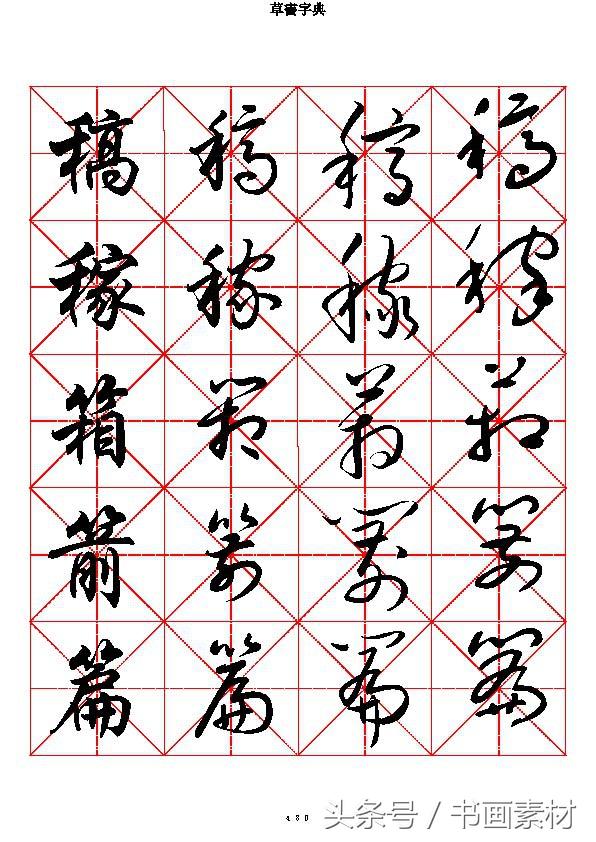 草書字典
稿 稿 稿 稿
稼 稼 稼 稼
箱 箱 箱 箱
箭 箭 箭 箭
篇 篇 篇 篇
430
头条号 / 书画素材